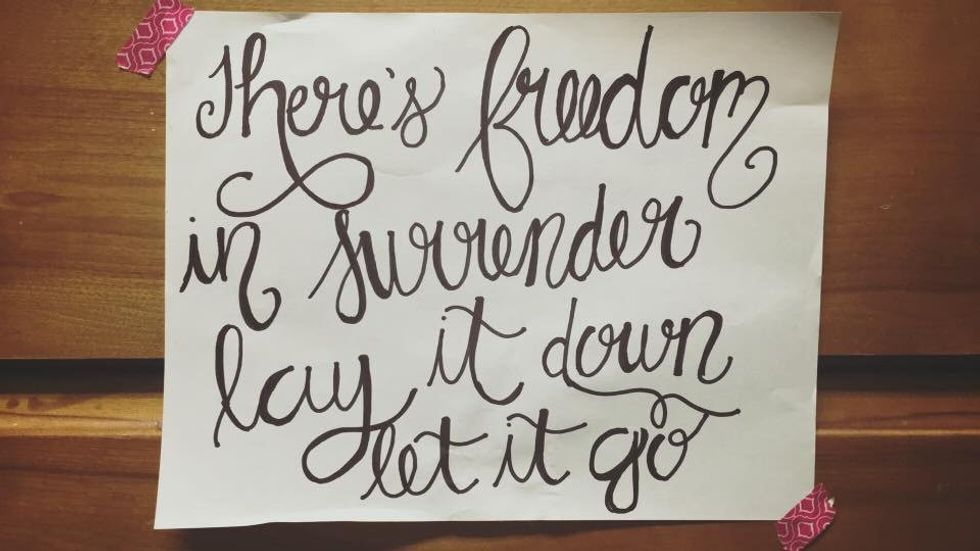 There's freedom
in surrender
lay it down
let it go